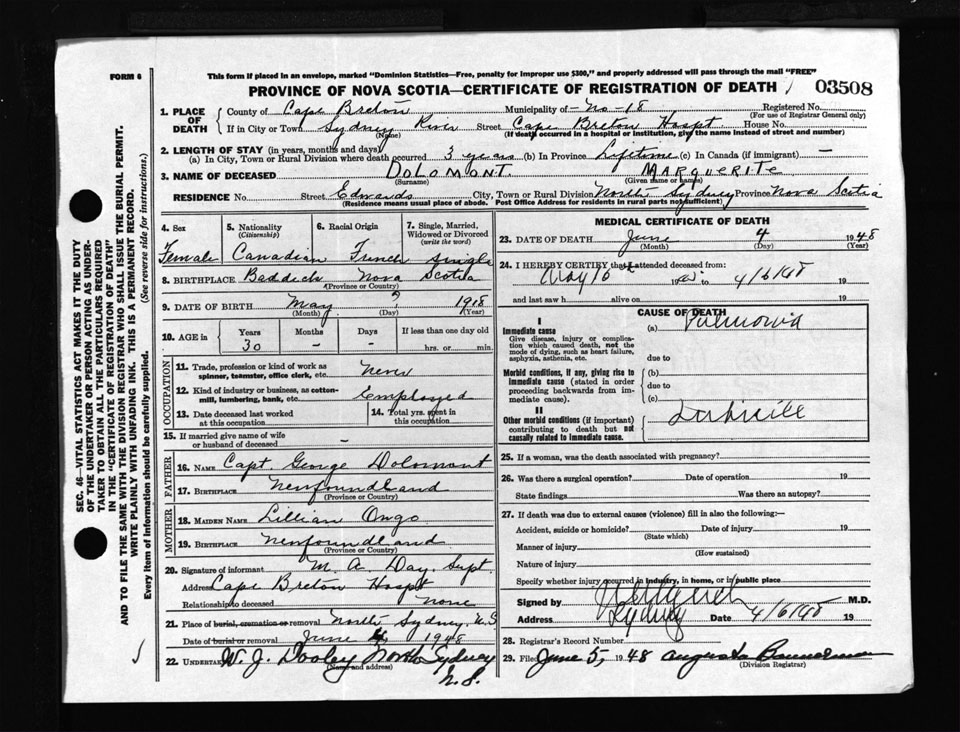 FORM 6
This form if placed in an envelope, marked "Dominion Statistics—Free, penalty for improper use $300," and properly addressed will pass through the mail "FREE"
PROVINCE OF NOVA SCOTIA—CERTIFICATE OF REGISTRATION OF DEATH 03508
1. PLACE OF DEATH County of Cape Breton Municipality of No-18 Registered No.
(For use of Registrar General only)
If in City or Town Sydney River Street Cape Breton Hospt House No.
(Name) (If death occurred in a hospital or institution, give the name instead of street and number)
2. LENGTH OF STAY (in years, months and days)
(a) In City, Town or Rural Division where death occurred 3 years (b) In Province Lifetime (c) In Canada (if immigrant) —
3. NAME OF DECEASED DOLOMONT. MARGUERITE
(Surname) (Given name or names)
RESIDENCE No. Street Edwards City, Town or Rural Division North Sydney Province Nova Scotia
(Residence means usual place of abode. Post Office Address for residents in rural parts not sufficient)
4. Sex 5. Nationality (Citizenship) 6. Racial Origin 7. Single, Married, Widowed or Divorced (write the word)
Female Canadian French Single
8. BIRTHPLACE Baddeck Nova Scotia
(Province or Country)
9. DATE OF BIRTH May ? 1918
(Month) (Day) (Year)
10. AGE in Years Months Days If less than one day old
30 – – hrs. or min.
OCCUPATION
11. Trade, profession or kind of work as spinner, teamster, office clerk, etc. Never
12. Kind of industry or business, as cotton-mill, lumbering, bank, etc. Employed
13. Date deceased last worked at this occupation 14. Total yrs. spent in this occupation
15. If married give name of wife or husband of deceased –
FATHER
16. NAME Capt. George Dolomont
17. BIRTHPLACE Newfoundland
(Province or Country)
MOTHER
18. MAIDEN NAME Lillian Ongo
19. BIRTHPLACE Newfoundland
(Province or Country)
20. Signature of informant M. A. Day. Supt.
Address Cape Breton Hospt
Relationship to deceased none
21. Place of burial, cremation or removal North Sydney, N.S
Date of burial or removal June 4, 1948
22. UNDERTAKER W. J. Dooley North Sydney
(Name and address) N.S.
MEDICAL CERTIFICATE OF DEATH
23. DATE OF DEATH June 4 1948
(Month) (Day) (Year)
24. I HEREBY CERTIFY that I attended deceased from:
May 10 19 to 4/6/48
and last saw h alive on 19
CAUSE OF DEATH
I
Immediate cause (a)
Give disease, injury or complication which caused death, not the mode of dying, such as heart failure, asphyxia, asthenia, etc. due to
Morbid conditions, if any, giving rise to immediate cause (stated in order proceeding backwards from immediate cause). (b)
due to
(c)
II
Other morbid conditions (if important) contributing to death but not causally related to immediate cause.
25. If a woman, was the death associated with pregnancy?
26. Was there a surgical operation? Date of operation 19
State findings Was there an autopsy?
27. If death was due to external causes (violence) fill in also the following:—
Accident, suicide or homicide? Date of injury 19
(State which)
Manner of injury
(How sustained)
Nature of injury
Specify whether injury occurred in industry, in home, or in public place
Signed by M.D.
Address Sydney Date 4/6/48 19
28. Registrar's Record Number
29. Filed June 5, 1948 Augusta Bannerman
(Division Registrar)
SEC. 46—VITAL STATISTICS ACT MAKES IT THE DUTY
OF THE UNDERTAKER OR PERSON ACTING AS UNDER-
TAKER TO OBTAIN ALL THE PARTICULARS REQUIRED
IN THE "CERTIFICATE OF REGISTRATION OF DEATH"
AND TO FILE THE SAME WITH THE DIVISION REGISTRAR WHO SHALL ISSUE THE BURIAL PERMIT.
WRITE PLAINLY WITH UNFADING INK. THIS IS A PERMANENT RECORD.
Every item of information should be carefully supplied. (See reverse side for instructions.)